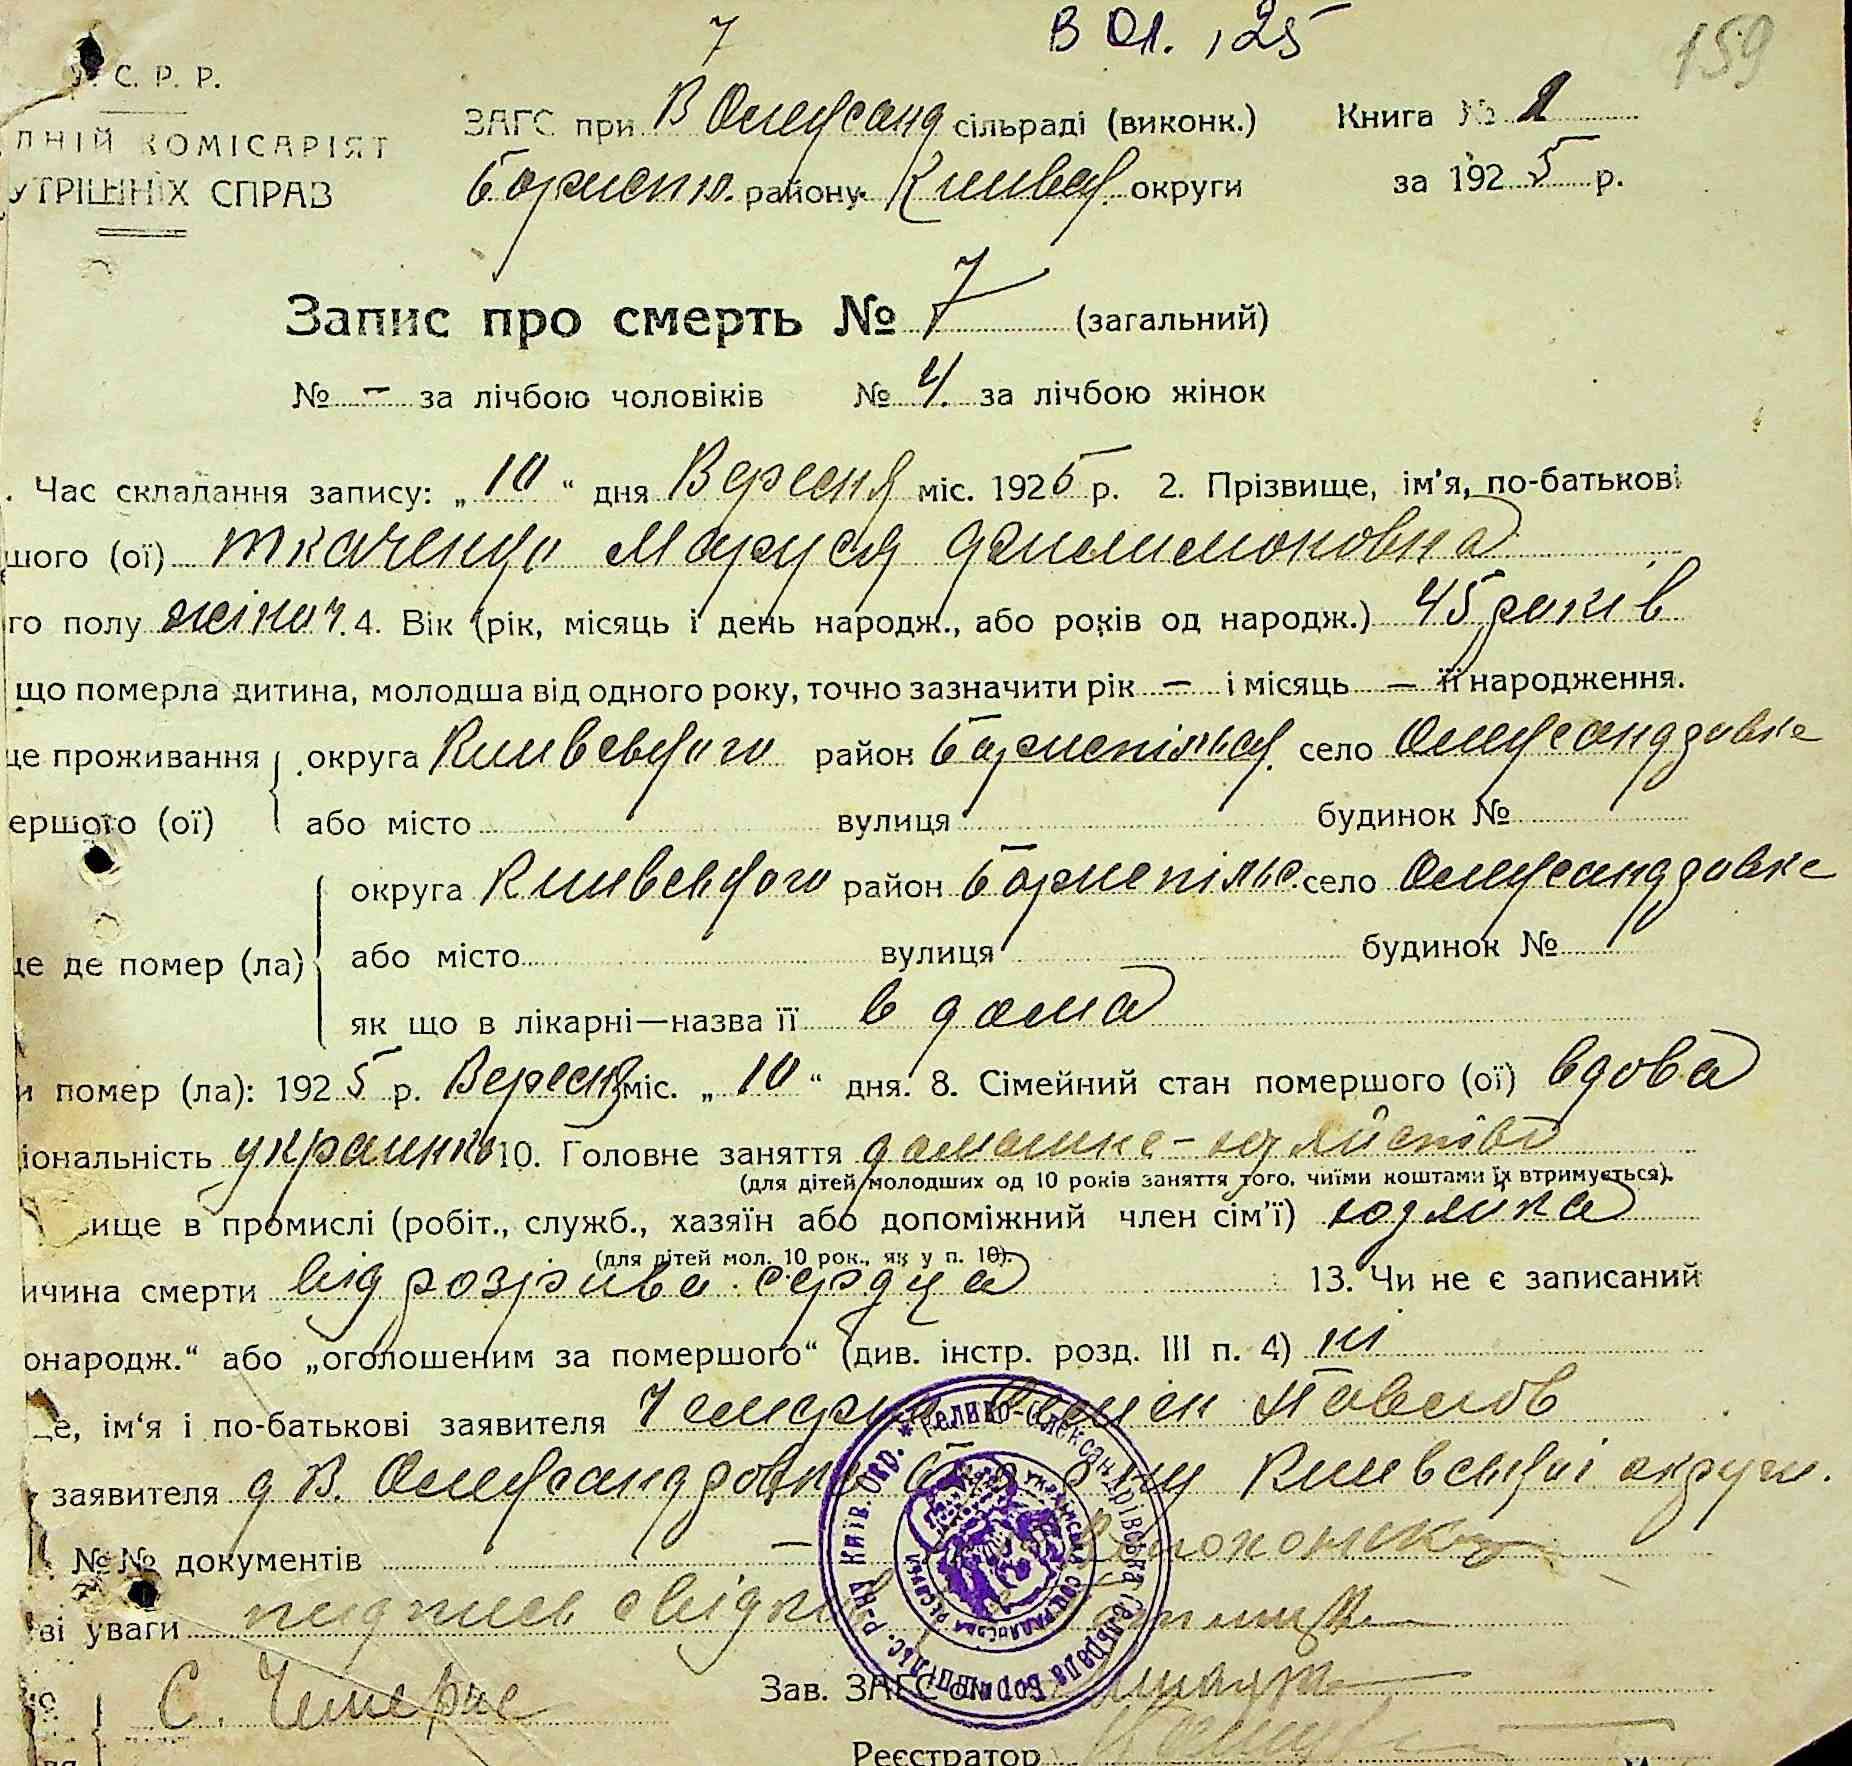 7 В Ол. , 25 159
У. С. Р. Р.
ЗАГС при В Олександ сільраді (виконк.) Книга № 1
ДНІЙ КОМІСАРІЯТ
УТРІШНІХ СПРАВ Борисп. району Київськ. округи за 1925 р.
Запис про смерть № 7 (загальний)
№ – за лічбою чоловіків № 4. за лічбою жінок
. Час складання запису: „10“ дня Вересня міс. 1925 р. 2. Прізвище, ім'я, по-батькові
шого (ої) Ткаченко Маруся Филимоновна
го полу жіноч. 4. Вік (рік, місяць і день народж., або років од народж.) 45 років
що померла дитина, молодша від одного року, точно зазначити рік – і місяць – її народження.
це проживання округа Київського район Бориспільськ. село Олександровке
ершого (ої) або місто вулиця будинок №
округа Київського район Бориспільс. село Олександровке
це де помер (ла) або місто вулиця будинок №
як що в лікарні—назва її в дома
и помер (ла): 1925 р. Вересня міс. „10“ дня. 8. Сімейний стан помершого (ої) вдова
іональність украинка 10. Головне заняття домашнє-
(для дітей молодших од 10 років заняття того, чиїми коштами їх втримується).
вище в промислі (робіт., служб., хазяїн або допоміжний член сім'ї)
(для дітей мол. 10 рок., як у п. 10).
ичина смерти від розрива сердца 13. Чи не є записаний
онародж.“ або „оголошеним за помершого“ (див. інстр. розд. III п. 4) ні
це, ім'я і по-батькові заявителя Чемерис Семен Павлов
заявителя в В. Олександровке Київської округи.
№№ документів –
ві уваги подпись свідків
С. Чемерис Зав. ЗАГС'ом
Реєстратор
* Велико-Олександрівська Сільрада Бориспільс. р-ну Київ. Окр.
Українська Соціялістична Радянська